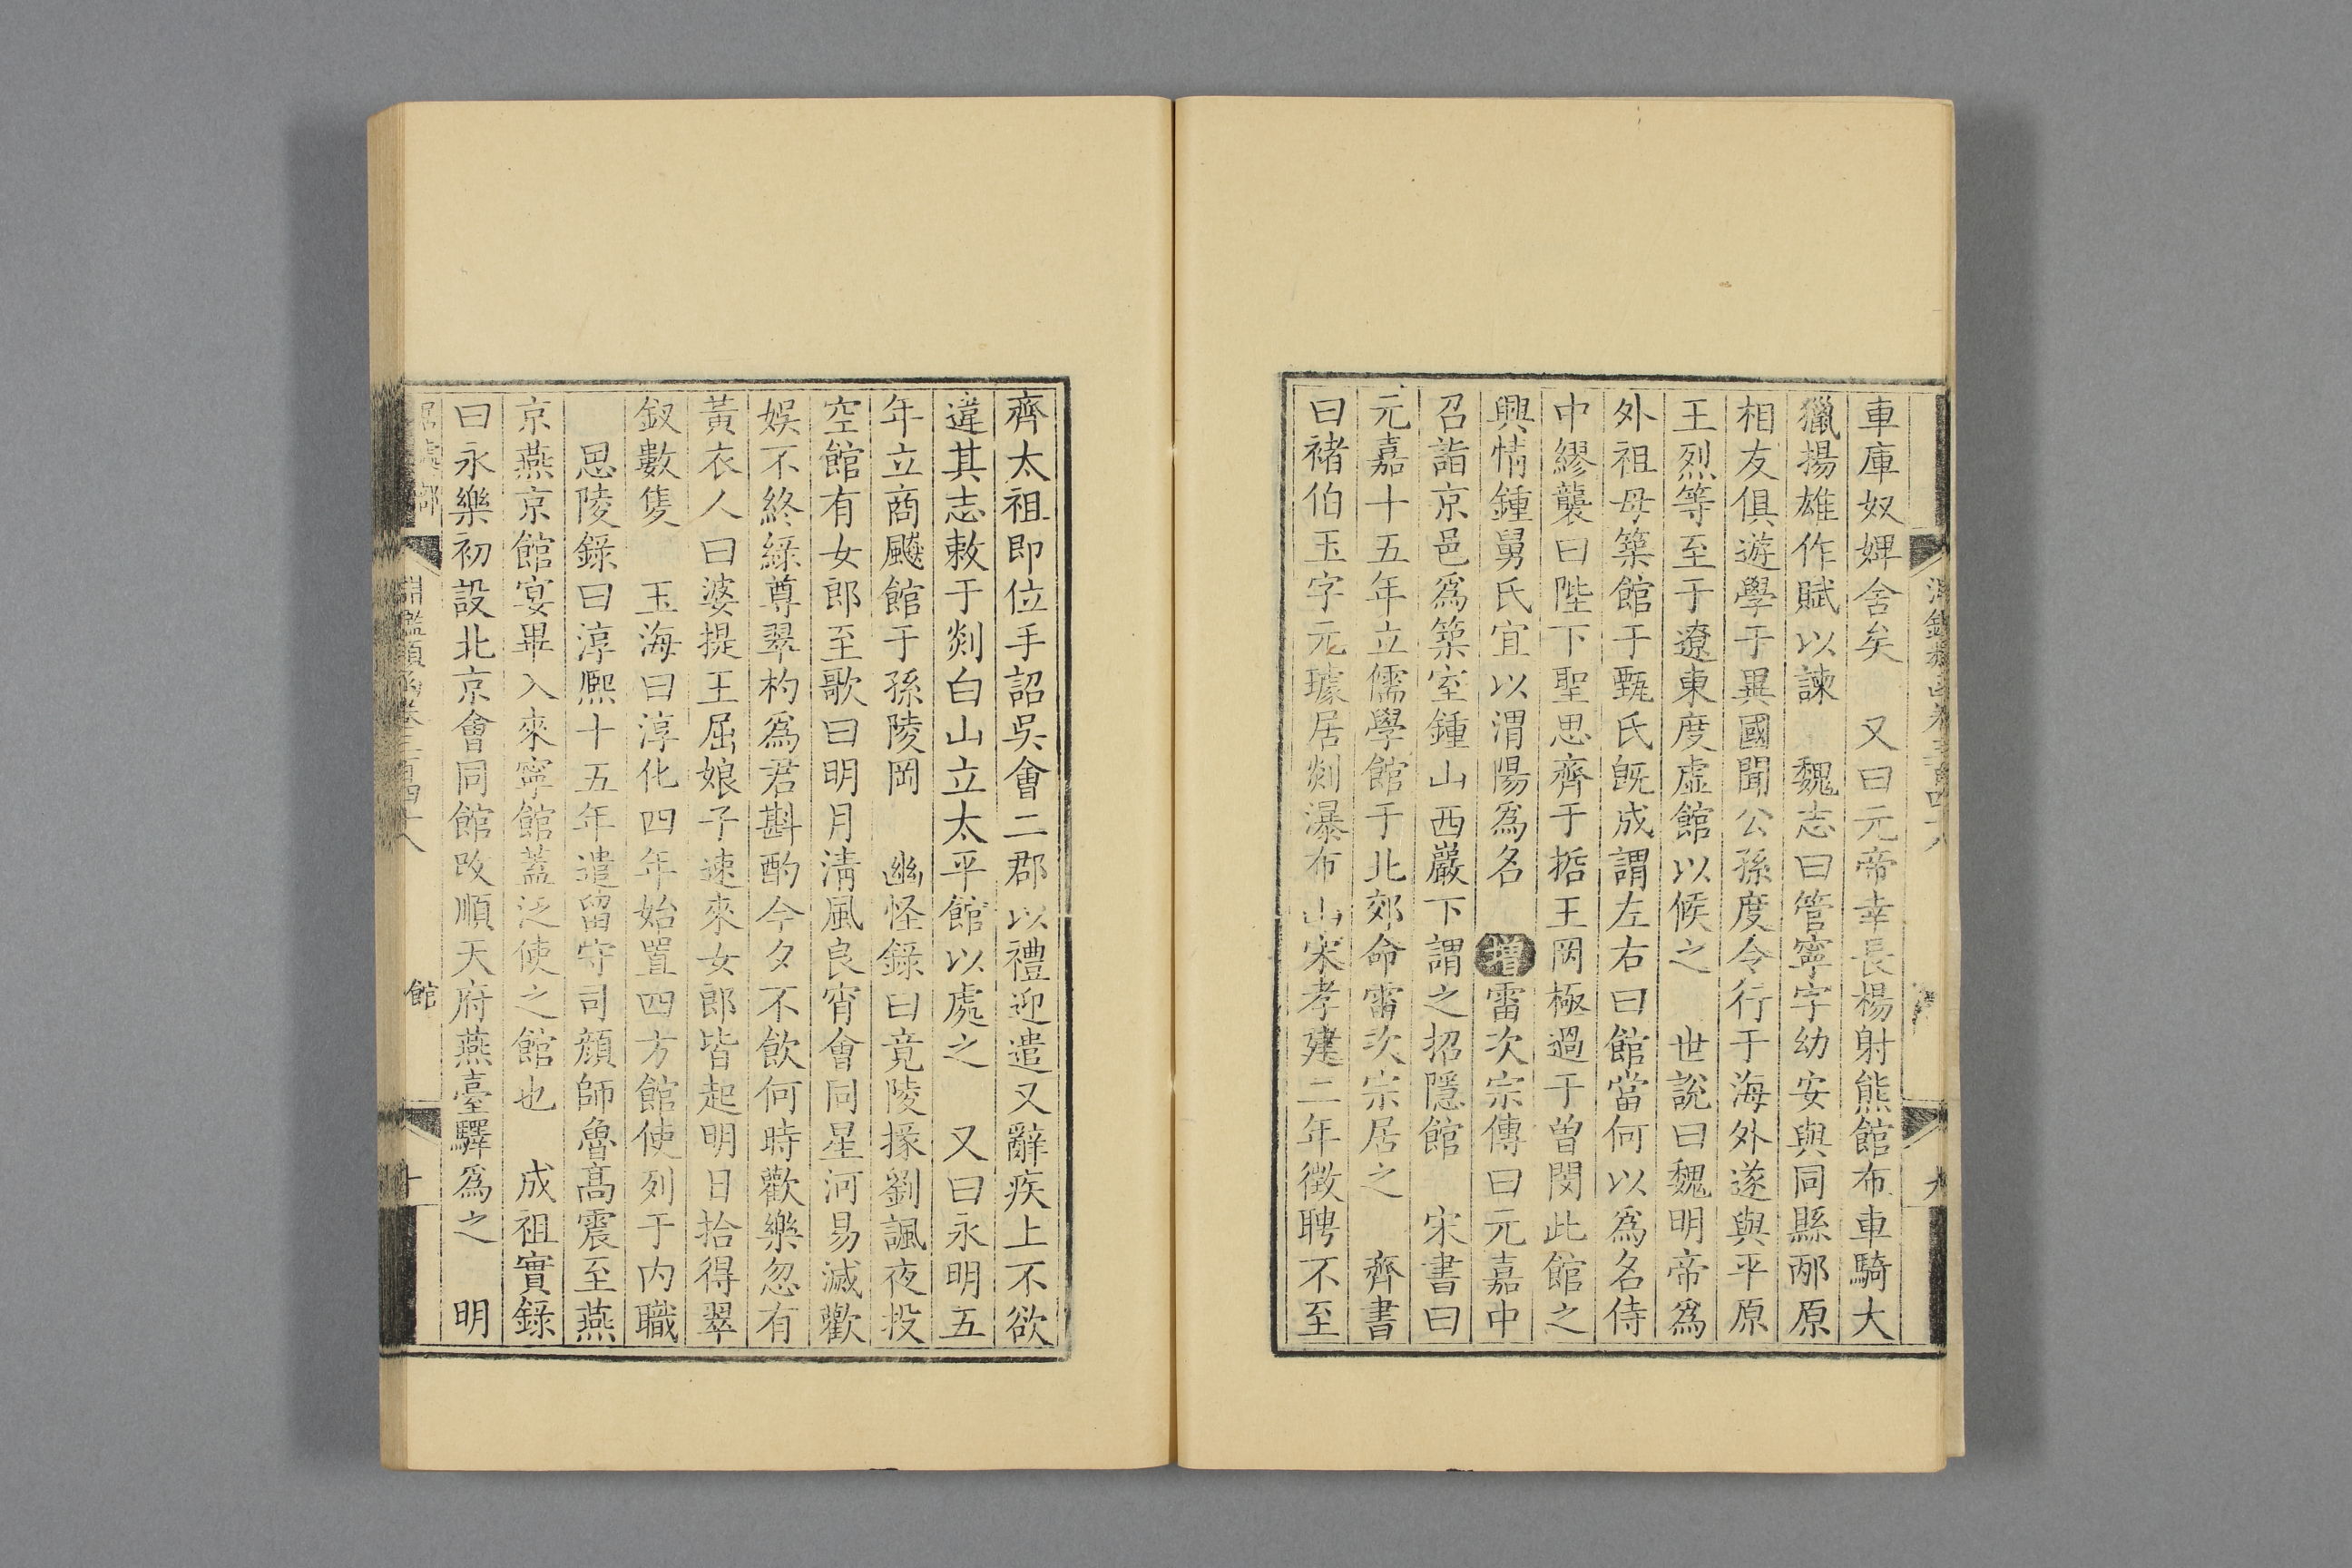 車庫奴婢舍矣　又曰元帝幸長楊射熊館布車騎大
獵揚雄作賦以諫　魏志曰管寧字幼安與同縣邴原
相友俱遊學于異國聞公孫度令行于海外遂與平原
王烈等至于遼東度虛館以候之　世說曰魏明帝爲
外祖母築館于甄氏旣成謂左右曰館當何以爲名侍
中繆襲曰陛下聖思齊于哲王罔極過于曾閔此館之
興情鍾舅氏宜以渭陽爲名　增雷次宗傳曰元嘉中
召詣京邑爲築室鍾山西巖下謂之招隱館　宋書曰
元嘉十五年立儒學館于北郊命雷次宗居之　齊書
曰褚伯玉字元璩居剡瀑布山宋孝建二年徵聘不至
齊太祖即位手詔吳會二郡以禮迎遣又辭疾上不欲
違其志敕于剡白山立太平館以處之　又曰永明五
年立商飈館于孫陵岡　幽怪錄曰竟陵掾劉諷夜投
空館有女郎至歌曰明月清風良宵會同星河易滅歡
娛不終綠尊翠杓爲君斟酌今夕不飲何時歡樂忽有
黃衣人曰婆提王屈娘子速來女郎皆起明日拾得翠
釵數隻　玉海曰淳化四年始置四方館使列于內職
思陵錄曰淳熙十五年遣留守司顏師魯高震至燕
京燕京館宴畢入來寧館蓋泛使之館也　成祖實錄
曰永樂初設北京會同館改順天府燕臺驛爲之　明
淵鑑類函卷三百四十八
館
十